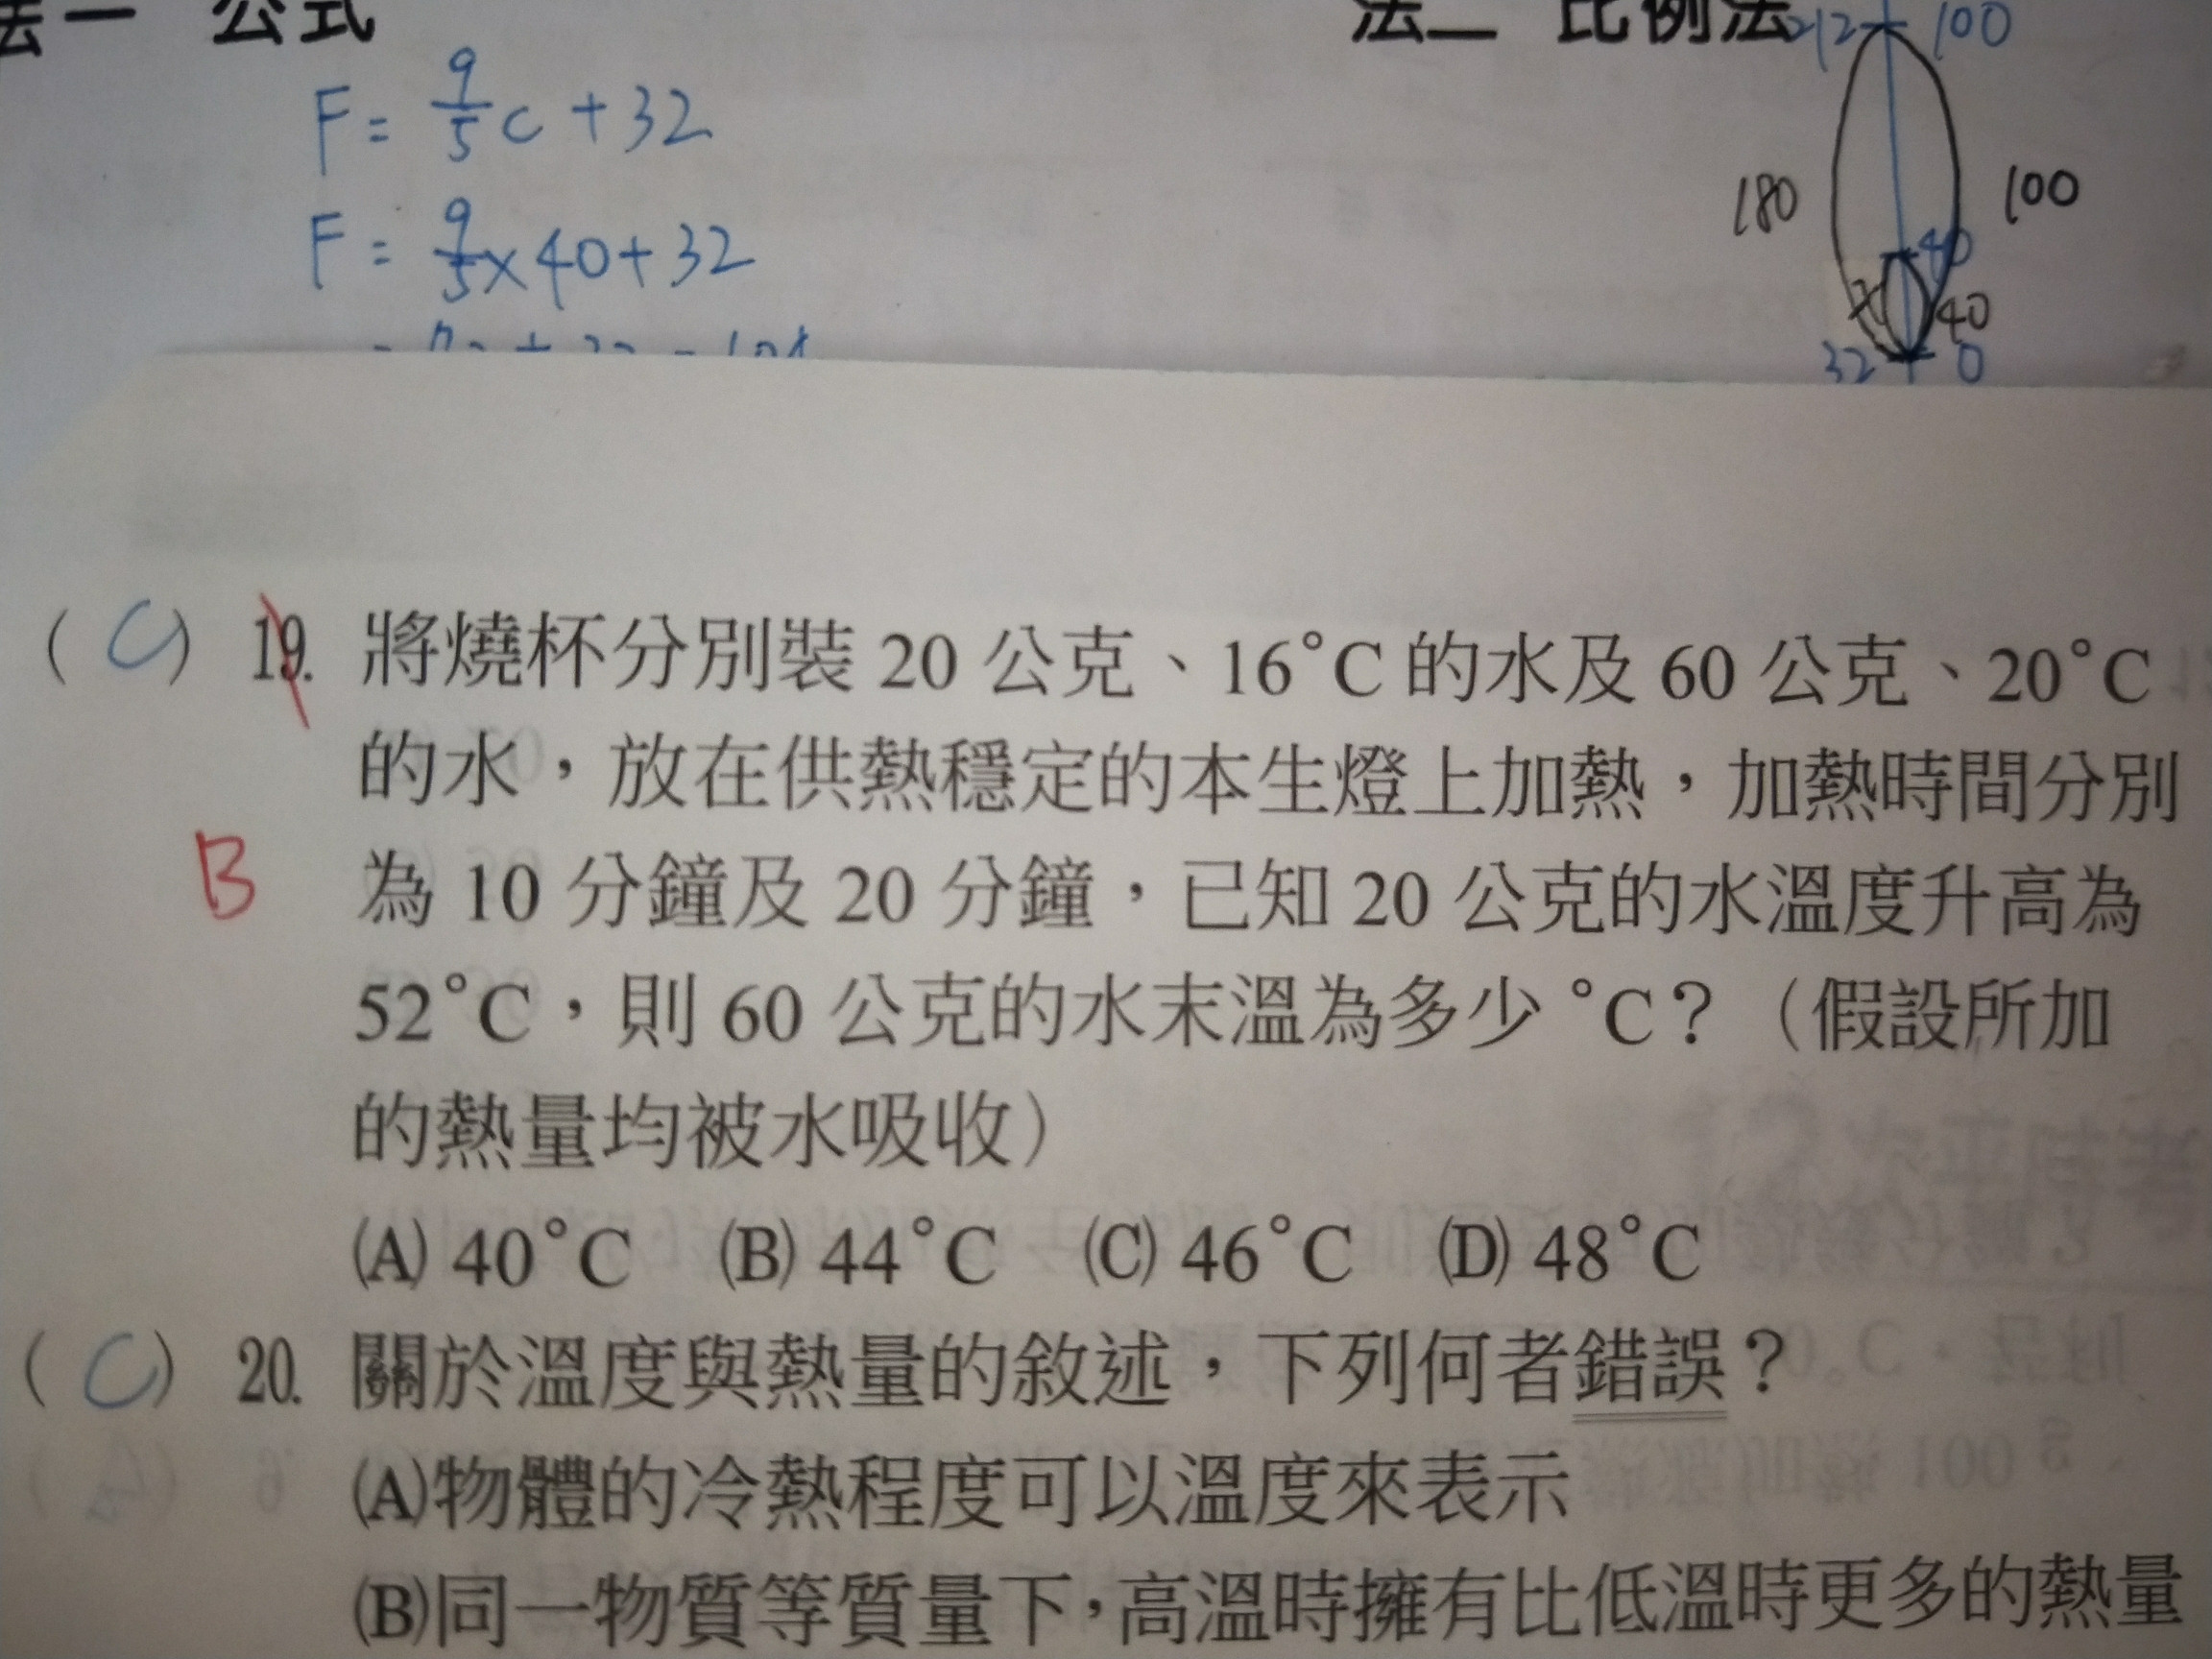 法一 公式
法二 比例法
212 100
F = 9/5 C + 32
180 100
F = 9/5 × 40 + 32
40
x 40
32 0
(C) 19. 將燒杯分別裝 20 公克、16°C 的水及 60 公克、20°C
的水，放在供熱穩定的本生燈上加熱，加熱時間分別
B
為 10 分鐘及 20 分鐘，已知 20 公克的水溫度升高為
52°C，則 60 公克的水末溫為多少 °C？（假設所加
的熱量均被水吸收）
(A) 40°C (B) 44°C (C) 46°C (D) 48°C
(C) 20. 關於溫度與熱量的敘述，下列何者錯誤？
(A)物體的冷熱程度可以溫度來表示
(B)同一物質等質量下，高溫時擁有比低溫時更多的熱量